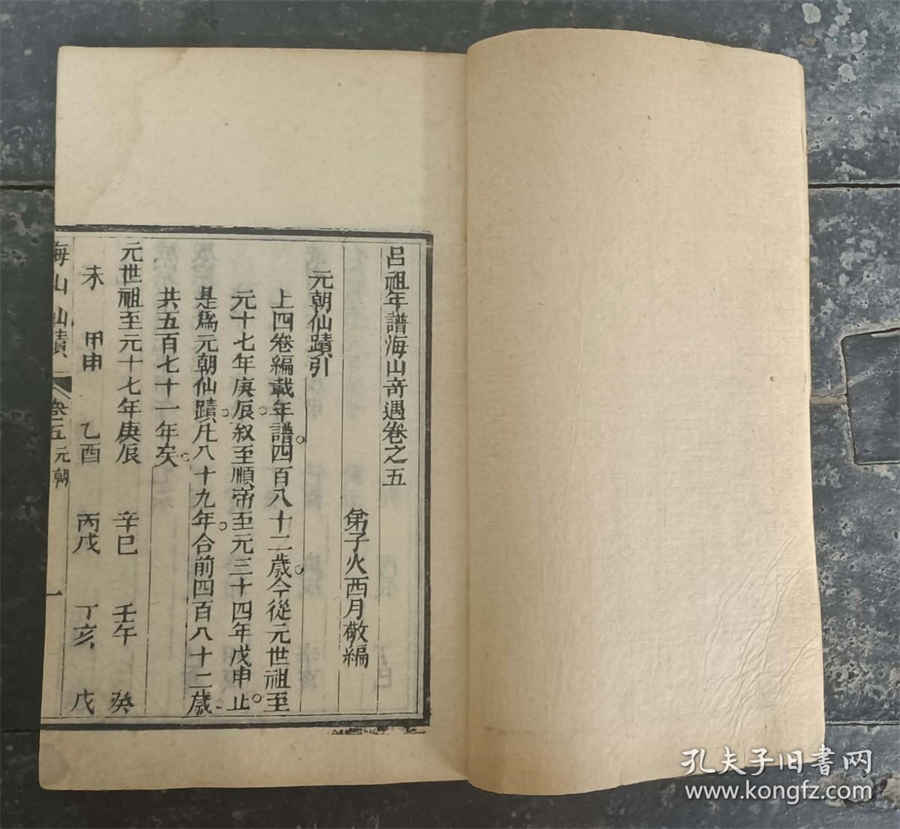 呂祖年譜海山奇遇卷之五
弟子火西月敬編
元朝仙蹟引
上四卷編載年譜四百八十二歲今從元世祖至
元十七年庚辰叙至順帝至元三十四年戊申止
是為元朝仙蹟凡八十九年合前四百八十二歲
共五百七十一年矣
元世祖至元十七年庚辰 辛巳 壬午 癸
未 甲申 乙酉 丙戌 丁亥 戊
海山仙蹟 卷五 元朝 一
孔夫子旧書网
www.kongfz.com